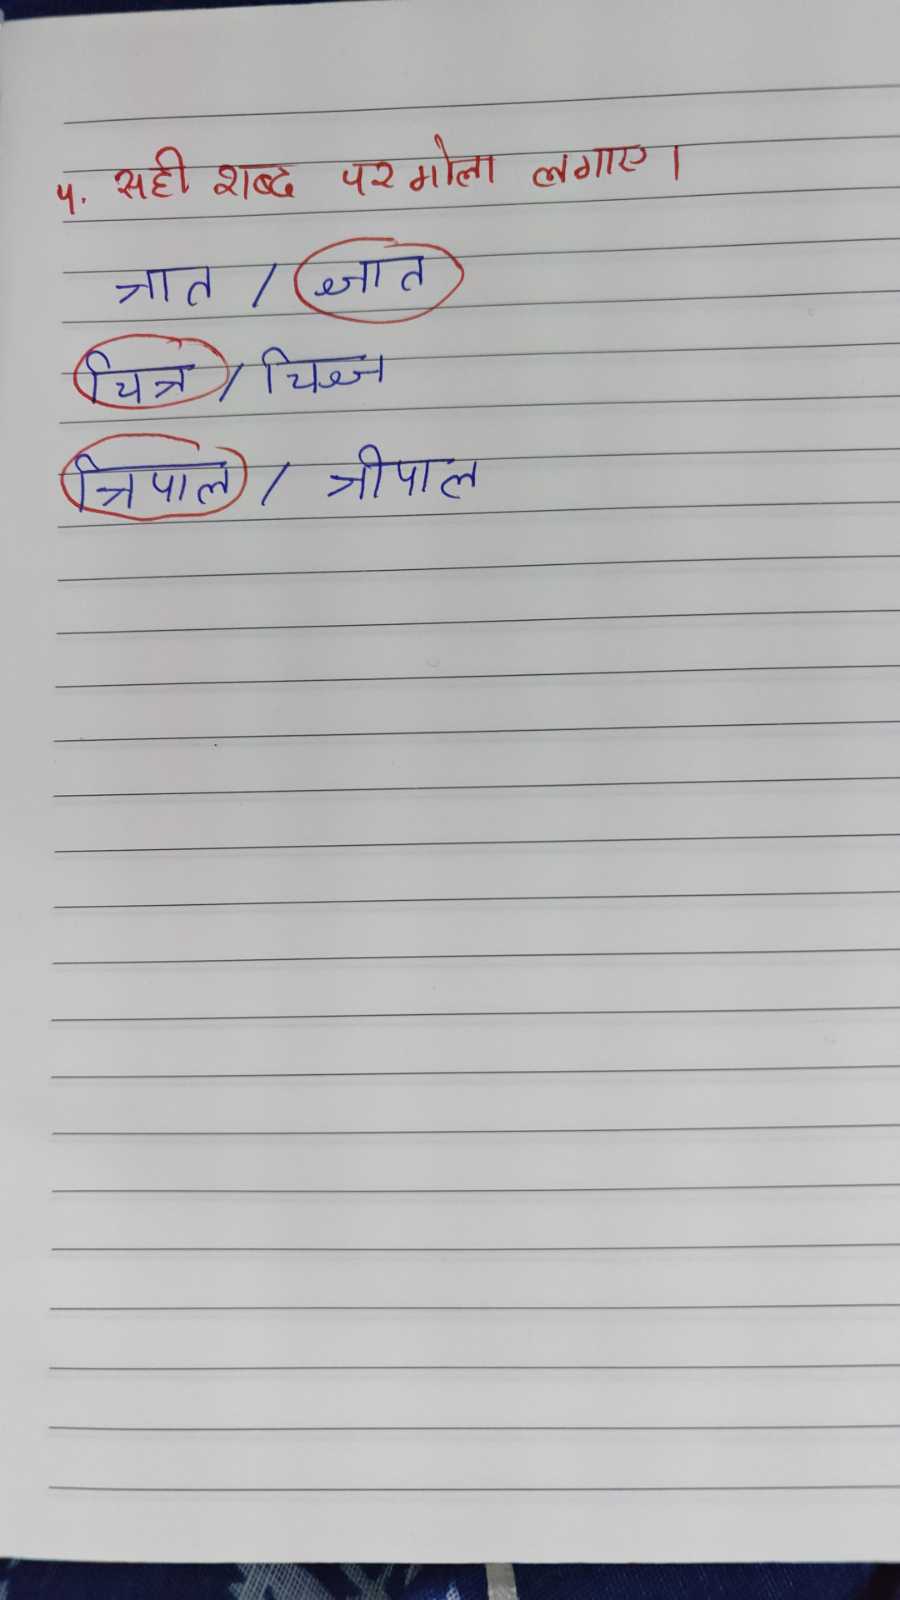 ५. सही शब्द पर गोला लगाए।
त्रात / ज्ञात
चित्र / चिज्ञ
त्रिपाल / त्रीपाल